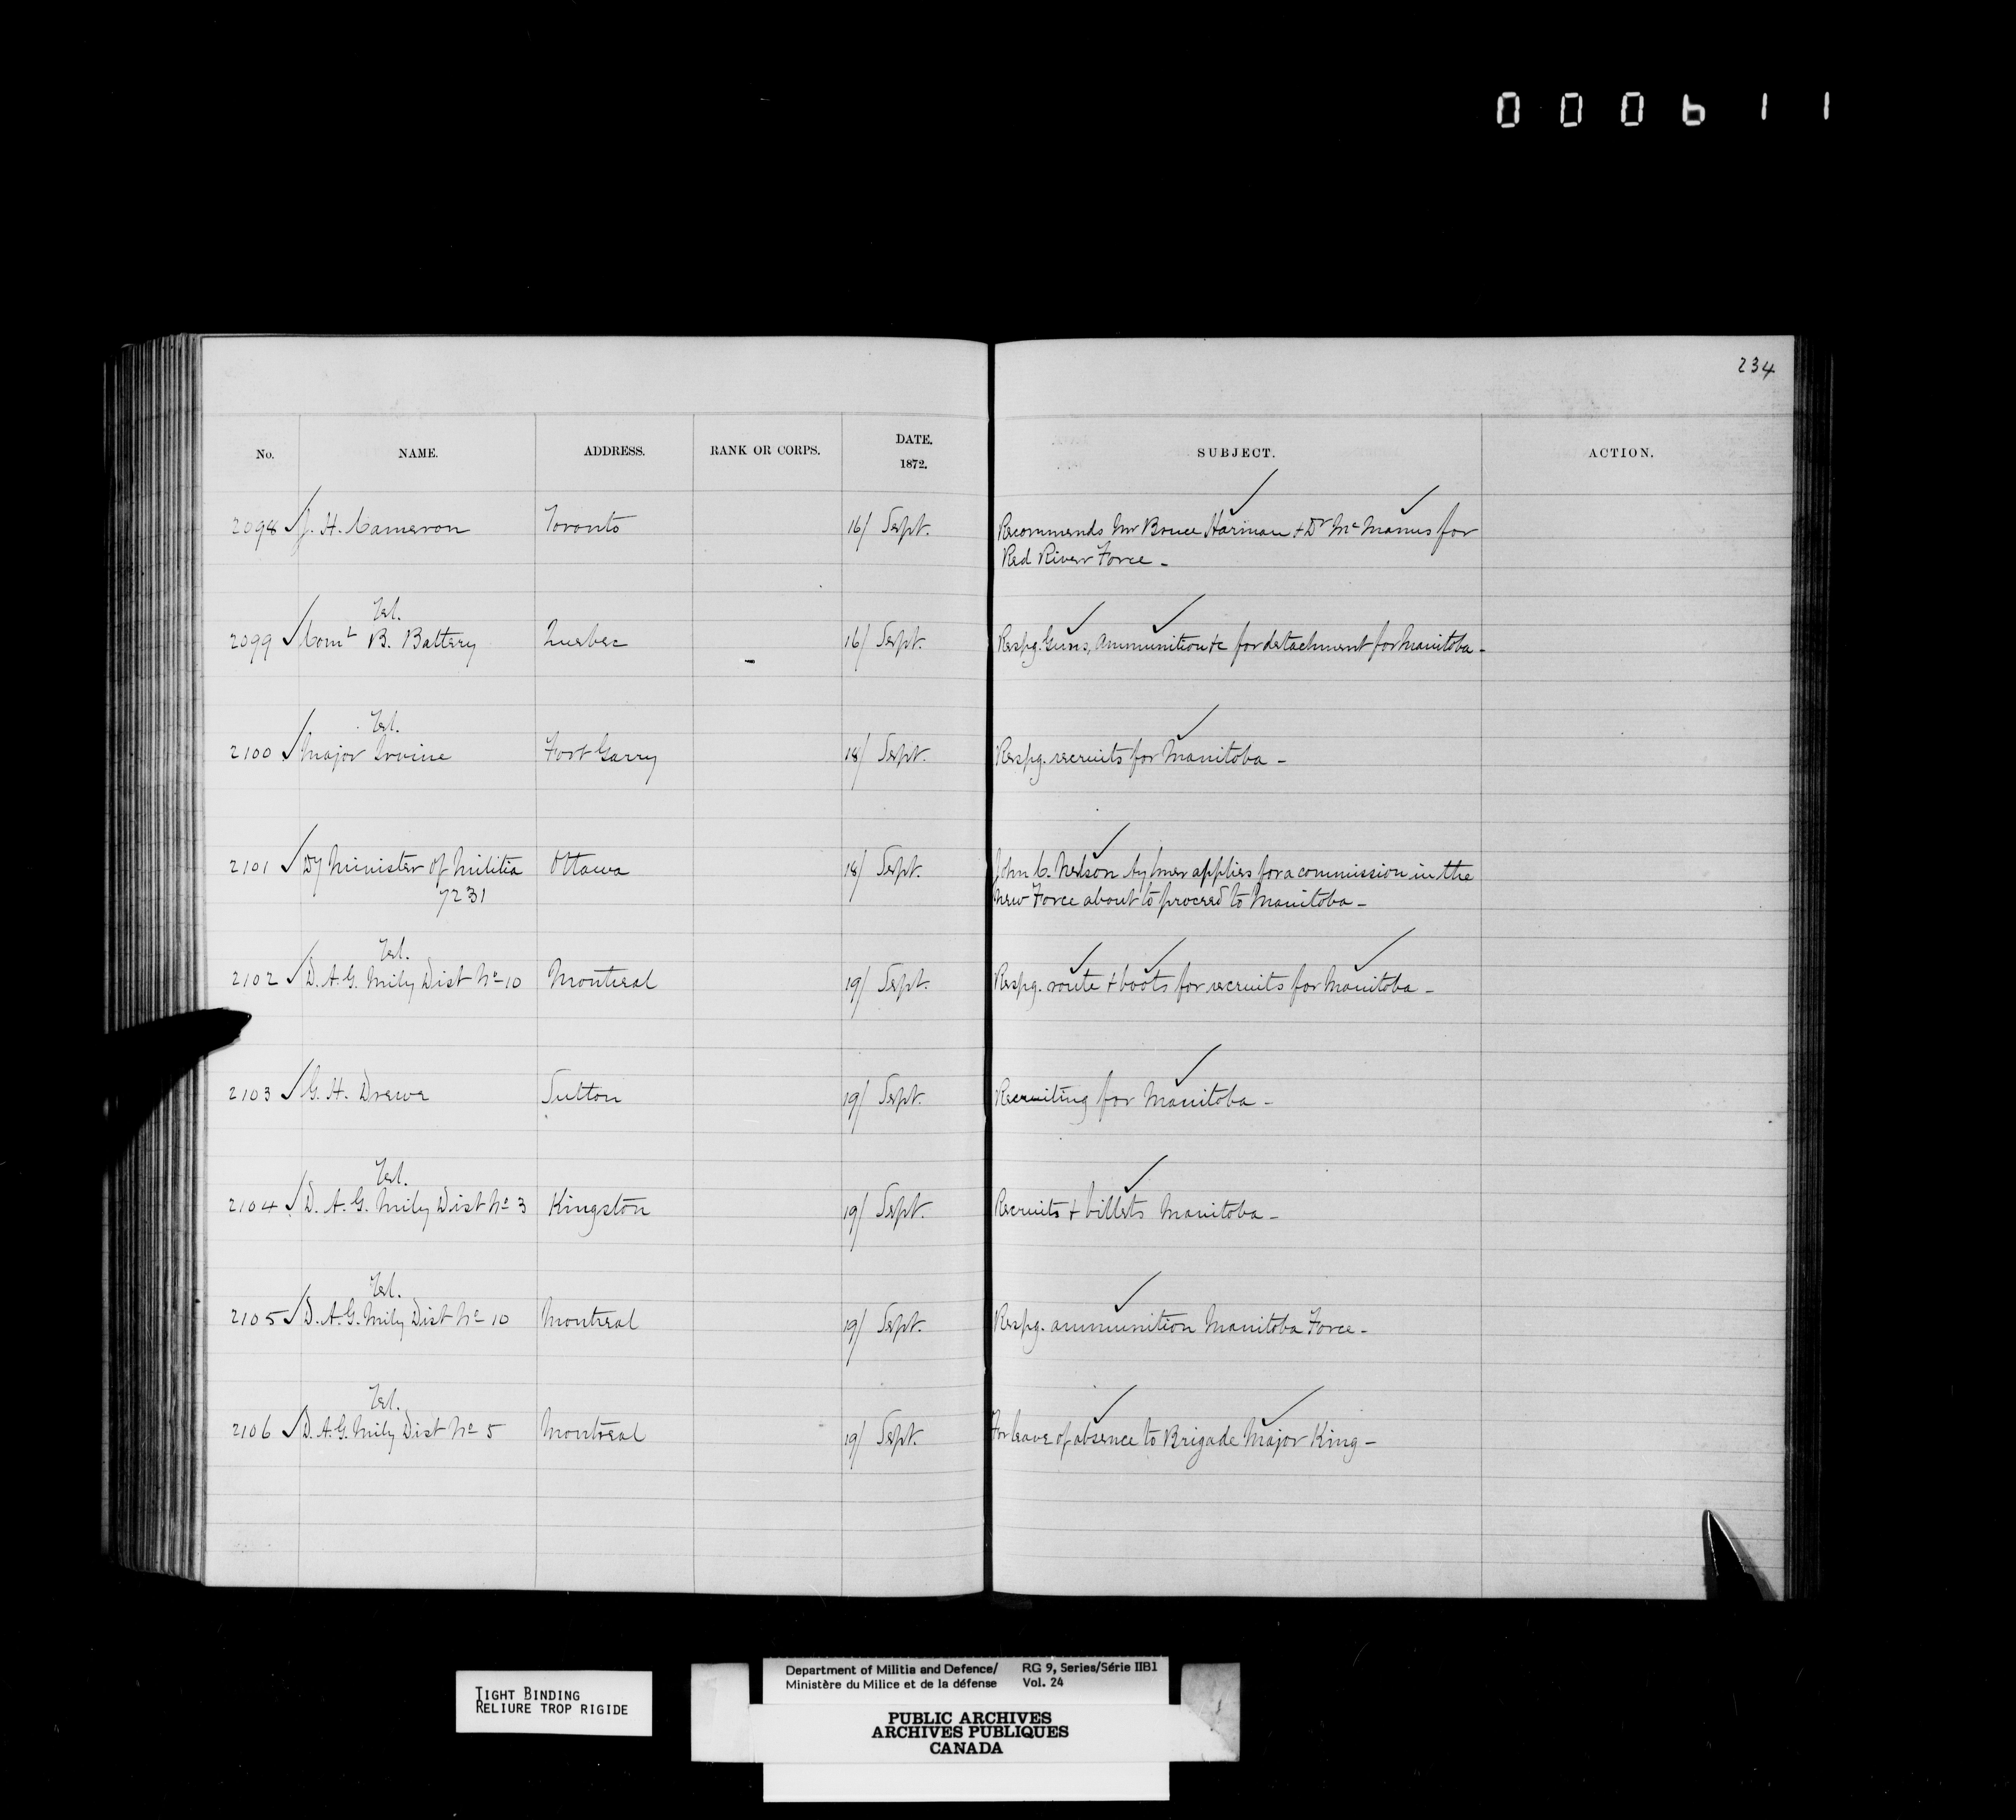 000611
234
No. NAME. ADDRESS. RANK OR CORPS. DATE. 1872. SUBJECT. ACTION.
2098 J. H. Cameron Toronto 16/ Sept. Recommends Mr Bruce Harman + Dr McManus for
Red River Force -
Tel.
2099 Comt B. Battery Quebec 16/ Sept. Respg. Guns, Ammunition &c for detachment for Manitoba -
Tel.
2100 Major Irvine Fort Garry 18/ Sept. Respg. recruits for Manitoba -
2101 Dy Minister of Militia Ottawa 18/ Sept. John C. Nelson Aylmer applies for a commission in the
7231 new Force about to proceed to Manitoba -
Tel.
2102 D. A. G. Mily Dist No 10 Montreal 19/ Sept. Respg. route + boots for recruits for Manitoba -
2103 G. H. Drewe Sutton 19/ Sept. Recruiting for Manitoba -
Tel.
2104 D. A. G. Mily Dist No 3 Kingston 19/ Sept. Recruits + billets Manitoba -
Tel.
2105 D. A. G. Mily Dist No 10 Montreal 19/ Sept. Respg. ammunition Manitoba Force -
Tel.
2106 D. A. G. Mily Dist No 5 Montreal 19/ Sept. For leave of absence to Brigade Major King -
TIGHT BINDING
RELIURE TROP RIGIDE
Department of Militia and Defence/ RG 9, Series/Série IIB1
Ministère du Milice et de la défense Vol. 24
PUBLIC ARCHIVES
ARCHIVES PUBLIQUES
CANADA